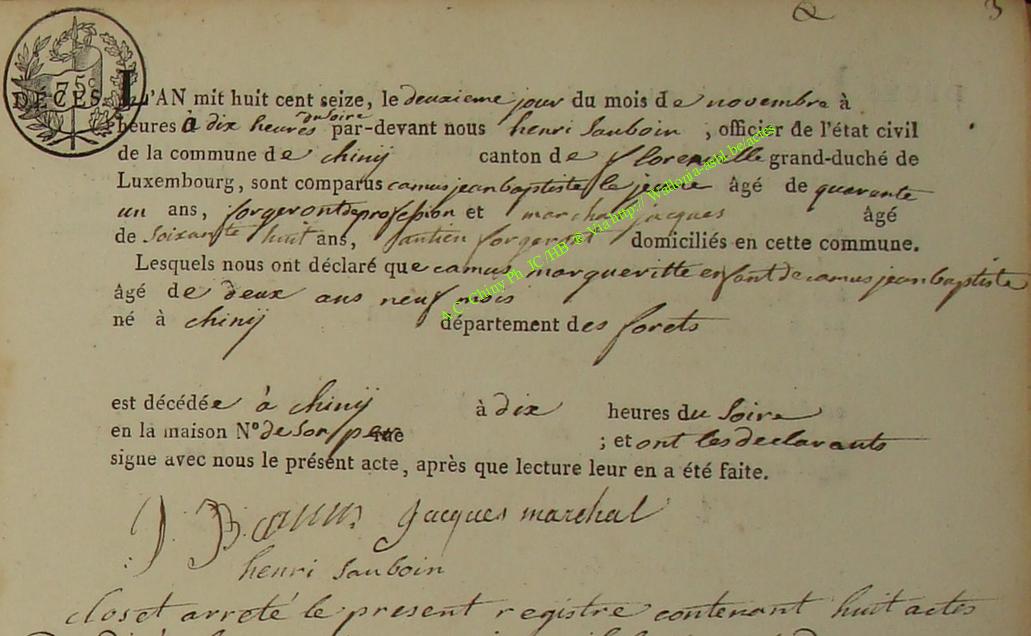 2 3
75c
DÉCÈS. L'AN mil huit cent seize, le deuxieme jour du mois de novembre à
heures à dix heures du soire par-devant nous henri Sauboin, officier de l'état civil
de la commune de chinij canton de florenville grand-duché de
Luxembourg, sont comparus camus jean baptiste le jeune âgé de quarante
un ans, forgeront de profession et marchal jacques âgé
de soixante huit ans, forgeront domiciliés en cette commune.
Lesquels nous ont déclaré que camus margueritte enfant de camus jean baptiste
âgé de deux ans neuf mois
né à chinij département des forets
est décédée à chinij à dix heures du Soire
en la maison N° de Son pere rue ; et ont les declarants
signe avec nous le présent acte, après que lecture leur en a été faite.
J. B. camus jacques marchal
henri Sauboin
clos et arreté le present registre contenant huit actes
A.C. Chiny Ph. JC /HB © Via http:// Wallonia-asbl.be/actes